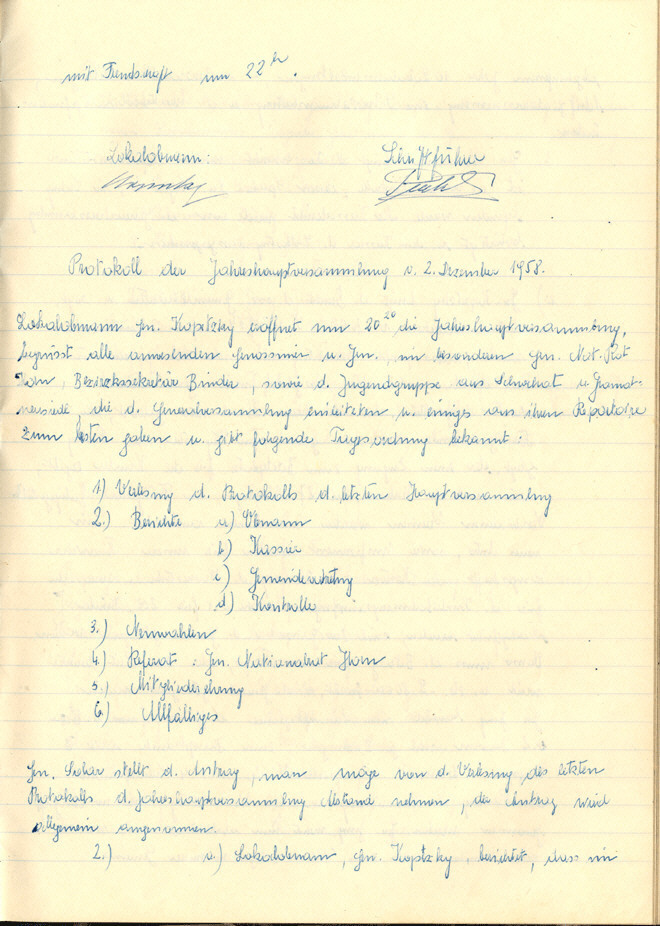 mit Freundschaft um 22 h.
Lokalobmann: Schriftführer
Protokoll der Jahreshauptversammlung v. 2. Dezember 1958.
Lokalobmann Gen. Kopitzky eröffnet um 20 20 die Jahreshauptversammlung,
begrüsst alle anwesenden Genossinnen u. Gen., im besonderen Gen. Nat. Rat
Horn, Bezirkssekretär Binder, sowie d. Jugendgruppe aus Schwechat u. Gramat-
neusiedl, die d. Generalversammlung einleiteten u. einiges aus ihrem Repertoire
zum besten gaben u. gibt folgende Tagesordnung bekannt:
1) Verlesung d. Protokolls d. letzten Hauptversammlung
2.) Berichte a) Obmann
b) Kassier
c) Gemeindevertretung
d) Kontrolle
3.) Neuwahlen
4.) Referat: Gen. Nationalrat Horn
5.) Mitgliederehrung
6.) Allfälliges
Gen. stellt d. Antrag, man möge von d. Verlesung des letzten
Protokolls d. Jahreshauptversammlung Abstand nehmen, der Antrag wird
allgemein angenommen.
2.) a) Lokalobmann, Gen. Kopitzky, berichtet, dass im